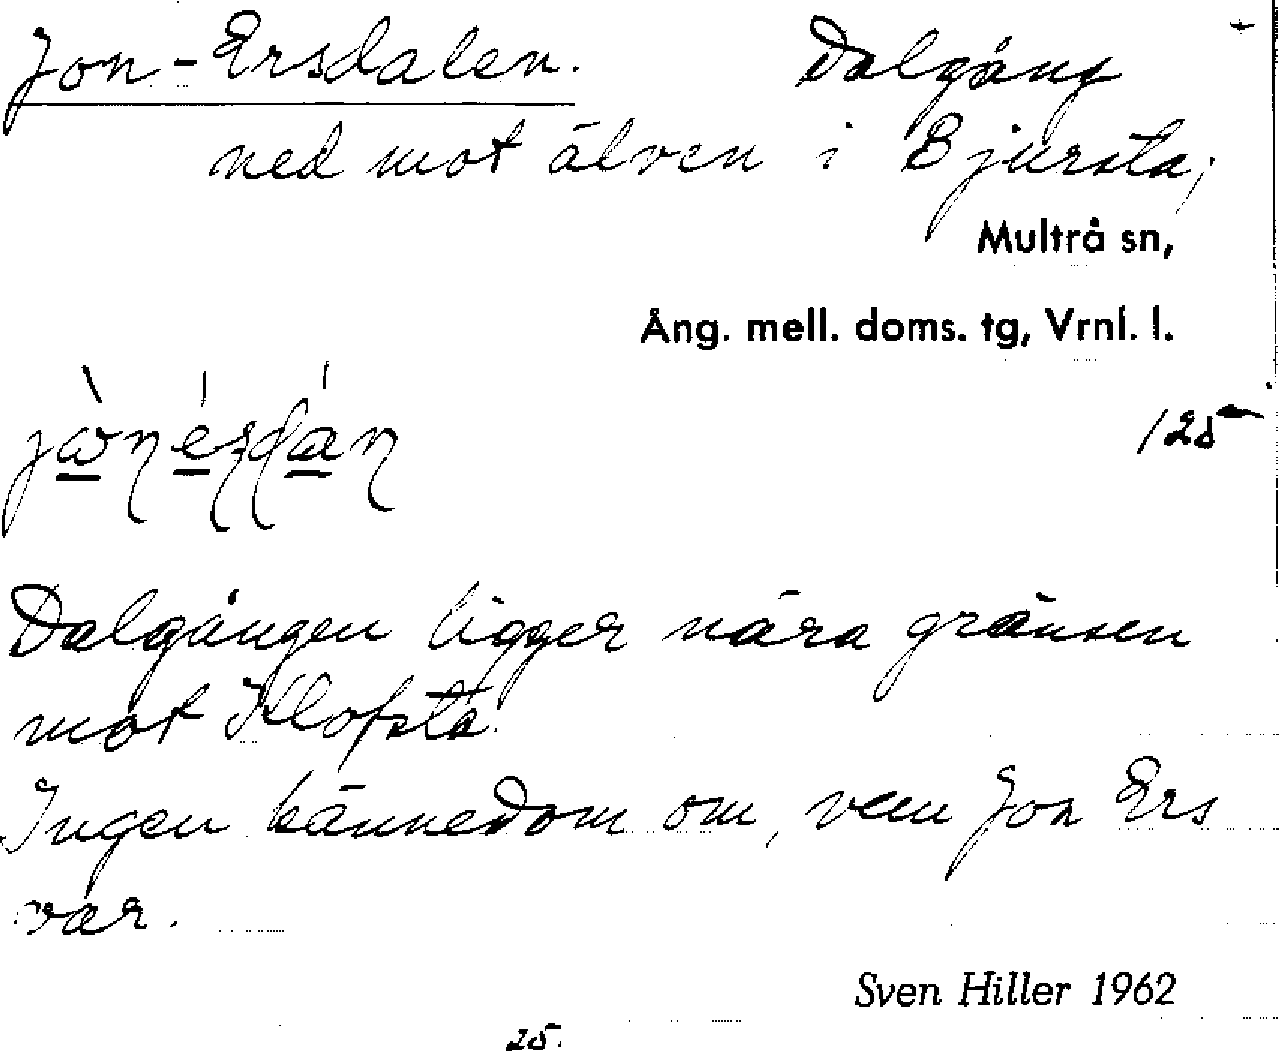 Jon-Ersdalen. Dalgång
ned mot älven i Bjursta,
Multrå sn,
Ång. mell. doms. tg, Vrnl. l.
125
Dalgången ligger nära gränsen
mot Klofsta.
Ingen kännedom om, vem Jon Ers
var.
Sven Hiller 1962
25.